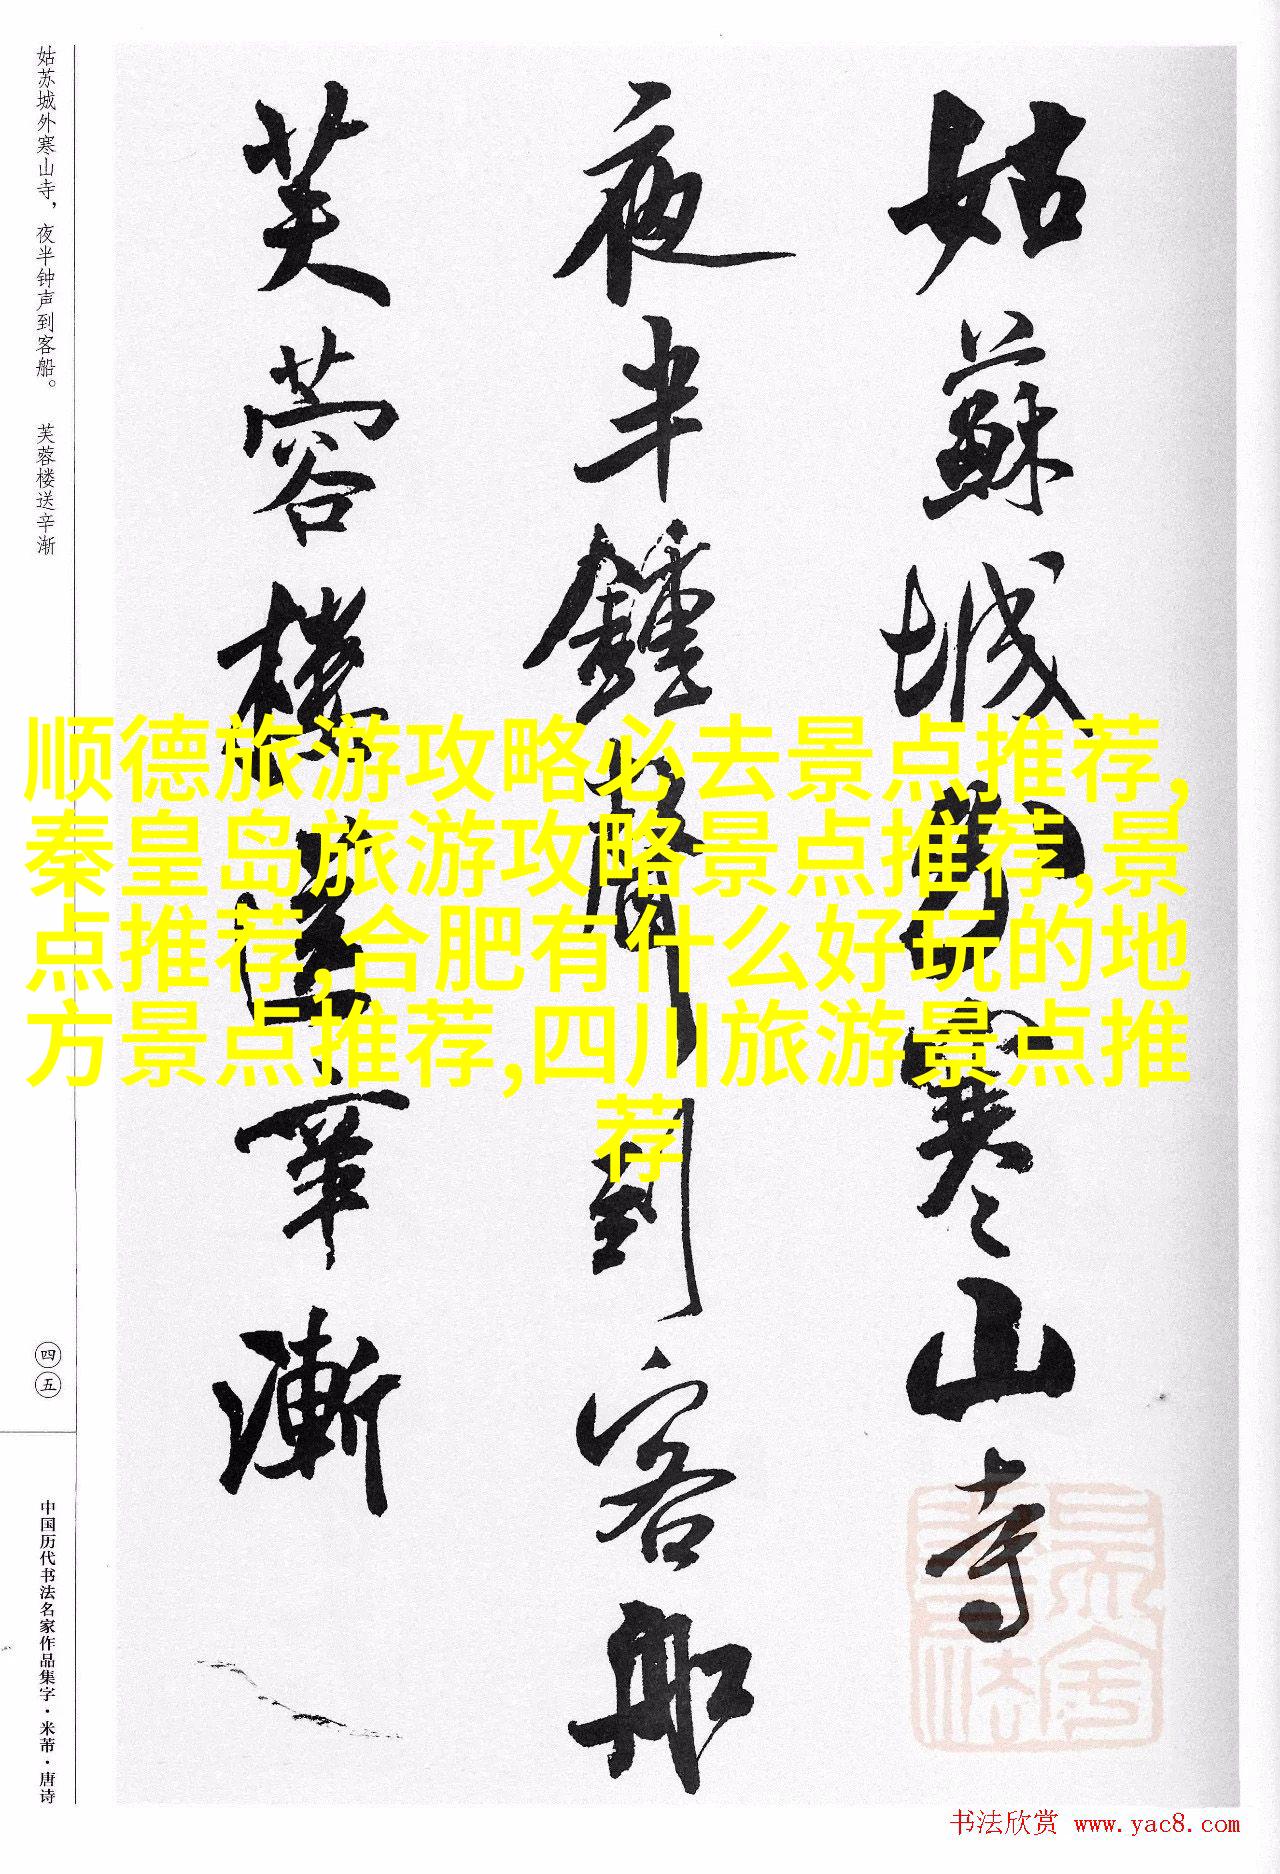 姑蘇城外寒山寺
夜半鍾聲到客船
芙蓉樓送辛漸
姑苏城外寒山寺，夜半钟声到客船。 芙蓉楼送辛渐
四五
中国历代书法名家作品集字·米芾·唐诗
顺德旅游攻略必去景点推荐,
秦皇岛旅游攻略景点推荐,景
点推荐,合肥有什么好玩的地
方景点推荐,四川旅游景点推
荐
书法欣赏 www.yac8.com